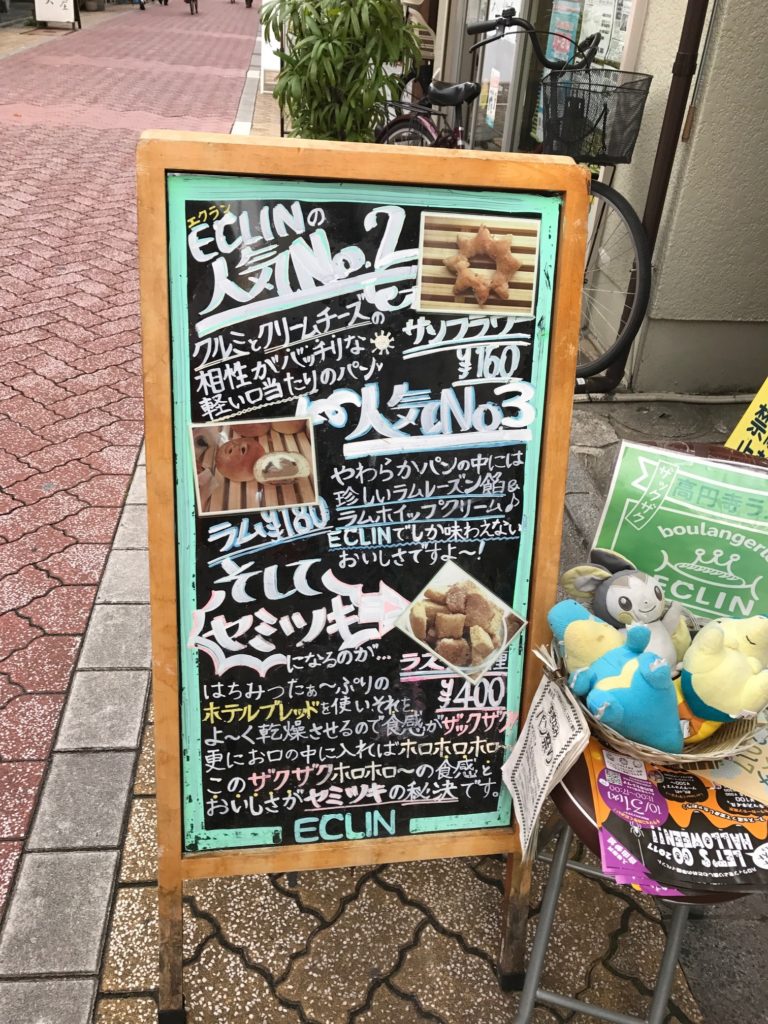 エクラン
ECLINの
人気No.2
クルミとクリームチーズの
相性がバッチリな
軽い口当たりのパン♪
サンフラワー
¥160
人気No3
やわらかパンの中には
珍しいラムレーズン餡&
ラムホイップクリーム♪
ECLINでしか味わえない
おいしさですよ〜!
ラム¥180
そして
ヤミツキ
になるのが…
¥400
はちみつたぁ〜ぷりの
ホテルブレッドを使いそれを
よ〜く乾燥させるので食感がザックザク
更にお口の中に入ればホロホロホロ〜
このザクザクホロホロ〜の食感と
おいしさがヤミツキの秘決です。
ECLIN
ザックザク
高円寺ラ
boulangerie
ECLIN
10/31(火)
LET'S GO 2017
HALLOWEEN!!